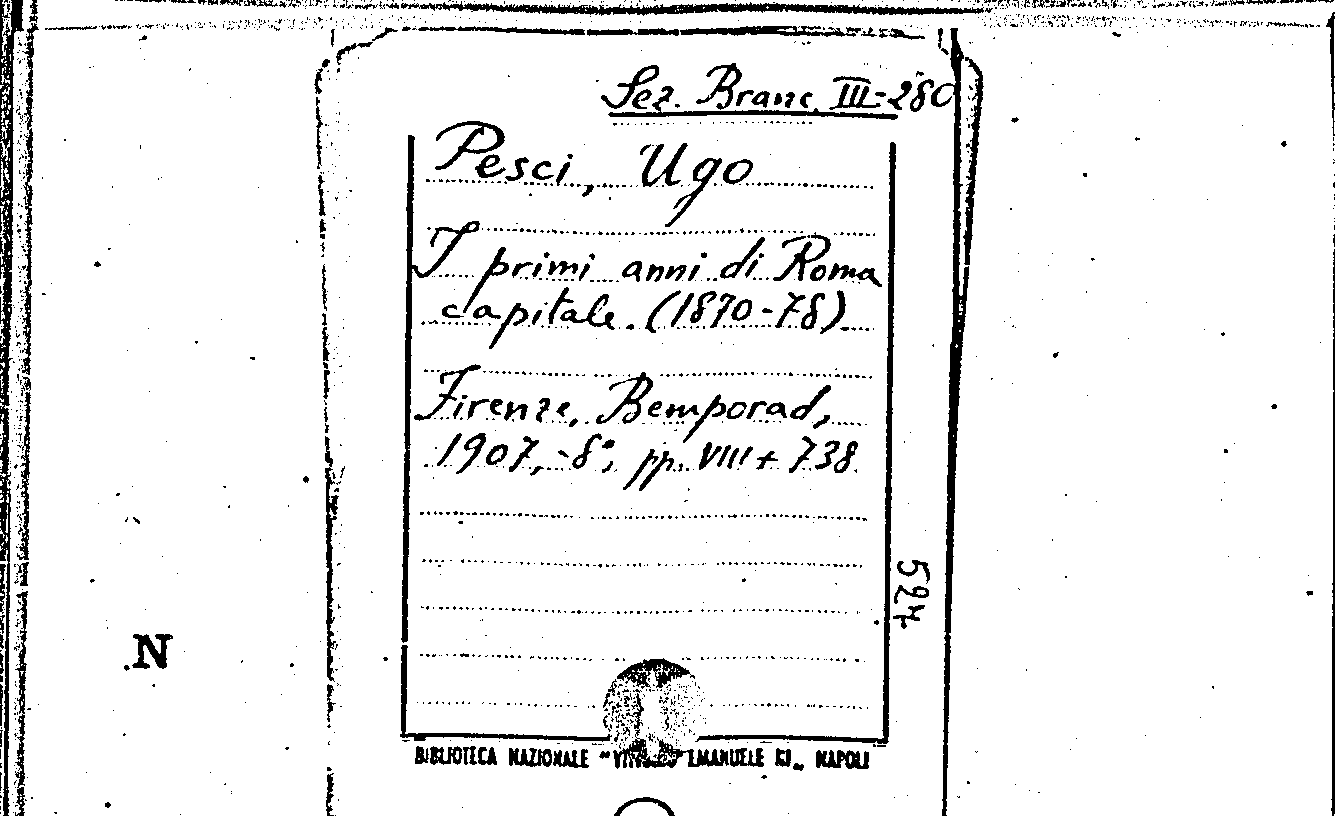 Sez. Branc. III-280
Pesci, Ugo
I primi anni di Roma
capitale. (1870-78).
Firenze, Bemporad,
1907, -8°, pp. VIII + 738
524
N
BIBLIOTECA NAZIONALE " EMANUELE NAPOLI